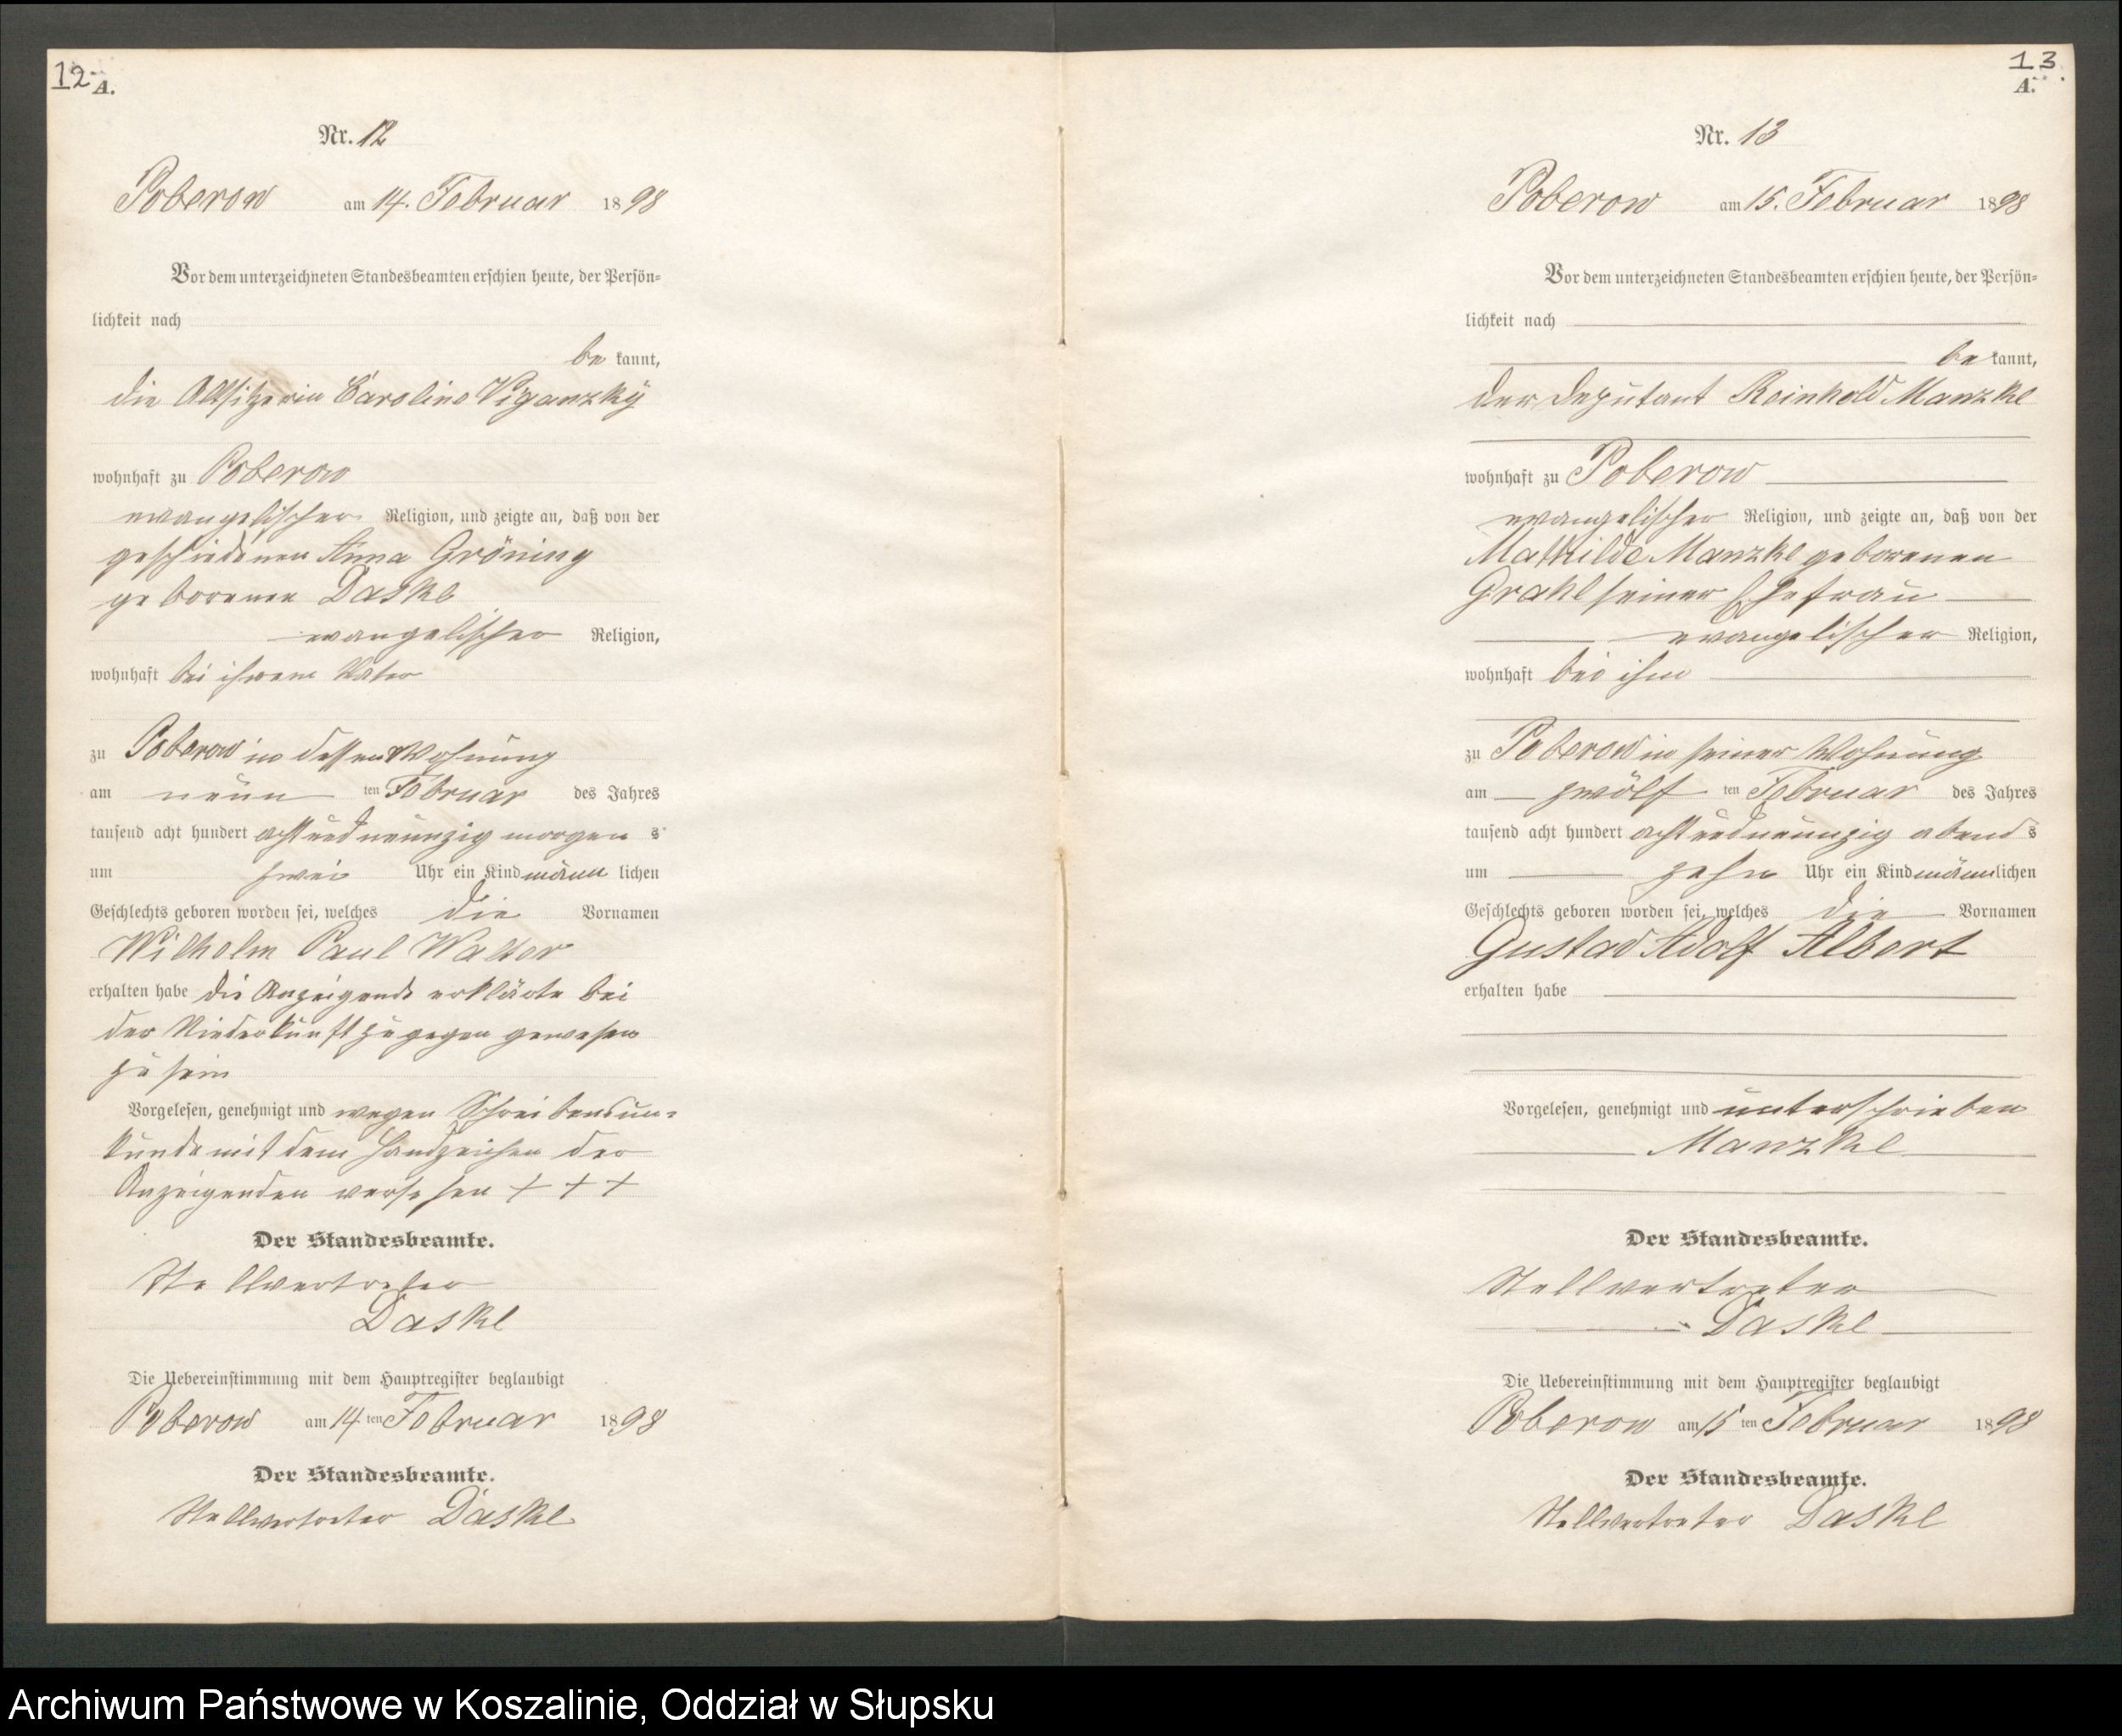 12
A.
Nr. 12
Poberow am 14. Februar 1898
Vor dem unterzeichneten Standesbeamten erschien heute, der Persön-
lichkeit nach
be kannt,
die Altsitzerin Caroline Viganzky
wohnhaft zu Poberow
evangelischer Religion, und zeigte an, daß von der
geschiedenen Anna Gröning
geborenen Daske
evangelischer Religion,
wohnhaft bei ihrem Vater
zu Poberow in dessen Wohnung
am neun ten Februar des Jahres
tausend acht hundert acht und neunzig morgen s
um zwei Uhr ein Kind männ lichen
Geschlechts geboren worden sei, welches die Vornamen
Wilhelm Paul Walter
erhalten habe die Anzeigende erklärte bei
der Niederkunft zugegen gewesen
zu sein
Vorgelesen, genehmigt und wegen Schreibensun-
kunde mit dem Handzeichen der
Anzeigenden versehen + + +
Der Standesbeamte.
Stellvertreter
Daske
Die Uebereinstimmung mit dem Hauptregister beglaubigt
Poberow am 14 ten Februar 1898
Der Standesbeamte.
Stellvertreter Daske
13.
A.
Nr. 13
Poberow am 15. Februar 1898
Vor dem unterzeichneten Standesbeamten erschien heute, der Persön-
lichkeit nach
be kannt,
der Deputant Reinhold Manzke
wohnhaft zu Poberow
evangelischer Religion, und zeigte an, daß von der
Mathilde Manzke geborenen
Grahl seiner Ehefrau
evangelischer Religion,
wohnhaft bei ihm
zu Poberow in seiner Wohnung
am zwölf ten Februar des Jahres
tausend acht hundert acht und neunzig abend s
um zehn Uhr ein Kind männlichen
Geschlechts geboren worden sei, welches die Vornamen
Gustav Adolf Albert
erhalten habe
Vorgelesen, genehmigt und unterschrieben
Manzke
Der Standesbeamte.
Stellvertreter
Daske
Die Uebereinstimmung mit dem Hauptregister beglaubigt
Poberow am 15 ten Februar 1898
Der Standesbeamte.
Stellvertreter Daske
Archiwum Państwowe w Koszalinie, Oddział w Słupsku